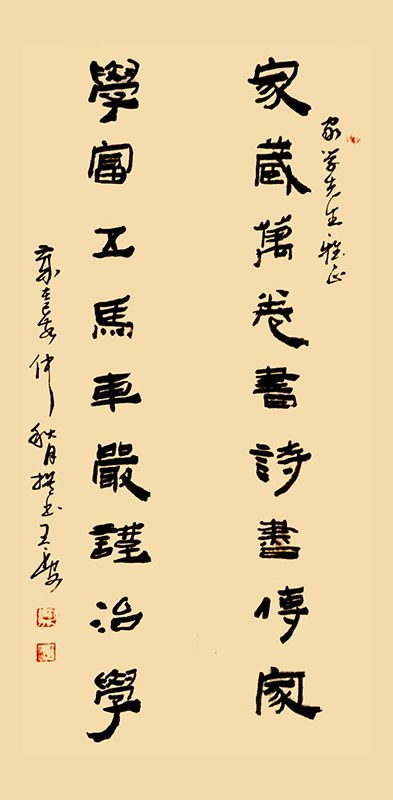 家學先生雅正
家藏萬卷書詩畫傳家
學富五馬車嚴謹治學
仲秋月撰书王